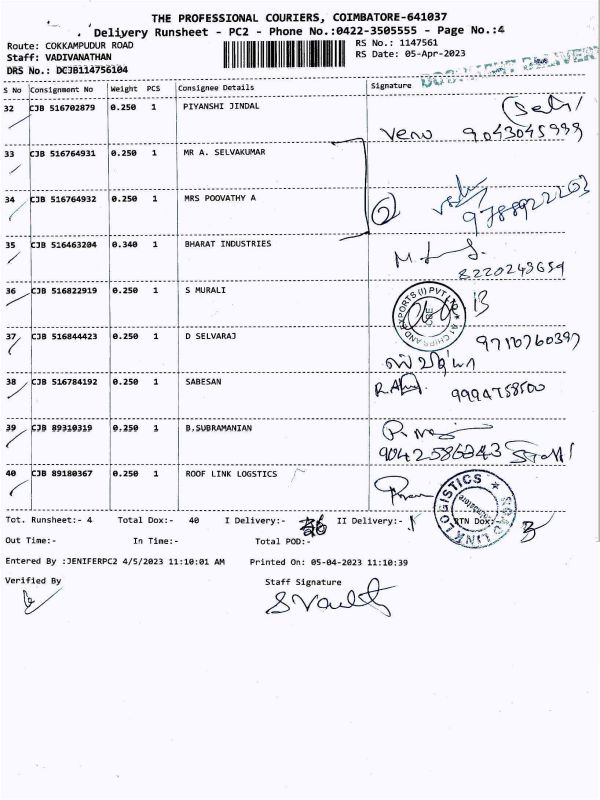 THE PROFESSIONAL COURIERS, COIMBATORE-641037
Delivery Runsheet - PC2 - Phone No.:0422-3505555 - Page No.:4
Route: COKKAMPUDUR ROAD RS No.: 1147561
Staff: VADIVANATHAN RS Date: 05-Apr-2023
DRS No.: DCJB114756104
S No Consignment No Weight PCS Consignee Details Signature
32 CJB 516702879 0.250 1 PIYANSHI JINDAL
Venu 9043045999
33 CJB 516764931 0.250 1 MR A. SELVAKUMAR
34 CJB 516764932 0.250 1 MRS POOVATHY A
2 9788922263
35 CJB 516463204 0.340 1 BHARAT INDUSTRIES
8220243659
36 CJB 516822919 0.250 1 S MURALI
37 CJB 516844423 0.250 1 D SELVARAJ
9710760397
38 CJB 516784192 0.250 1 SABESAN
9994758500
39 CJB 89310319 0.250 1 B.SUBRAMANIAN
9042586243
40 CJB 89180367 0.250 1 ROOF LINK LOGSTICS
Tot. Runsheet:- 4 Total Dox:- 40 I Delivery:- II Delivery:- RTN Dox:-
Out Time:- In Time:- Total POD:-
Entered By :JENIFERPC2 4/5/2023 11:10:01 AM Printed On: 05-04-2023 11:10:39
Verified By Staff Signature